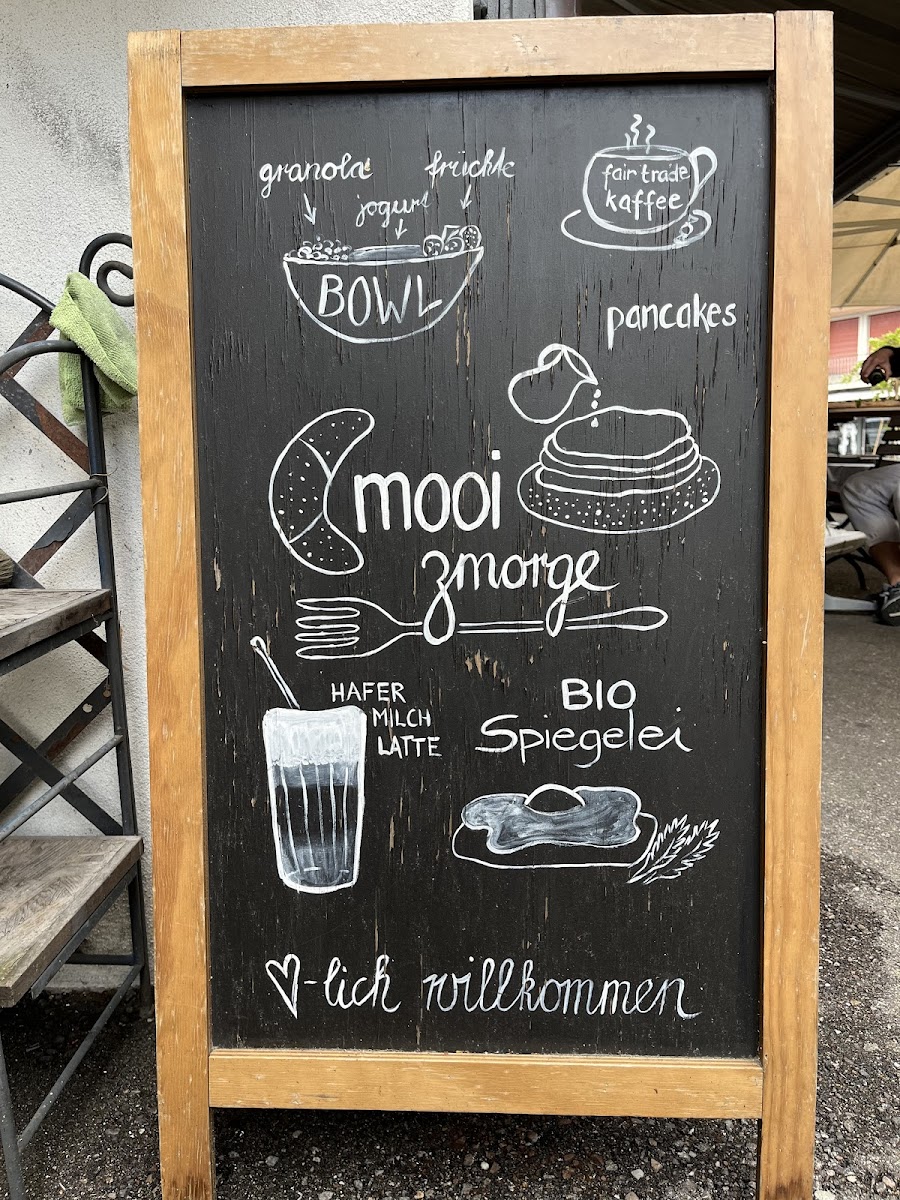 granola
früchte
jogurt
BOWL
fair trade
kaffee
pancakes
mooi
zmorge
HAFER
MILCH
LATTE
BIO
Spiegelei
♡-lich willkommen